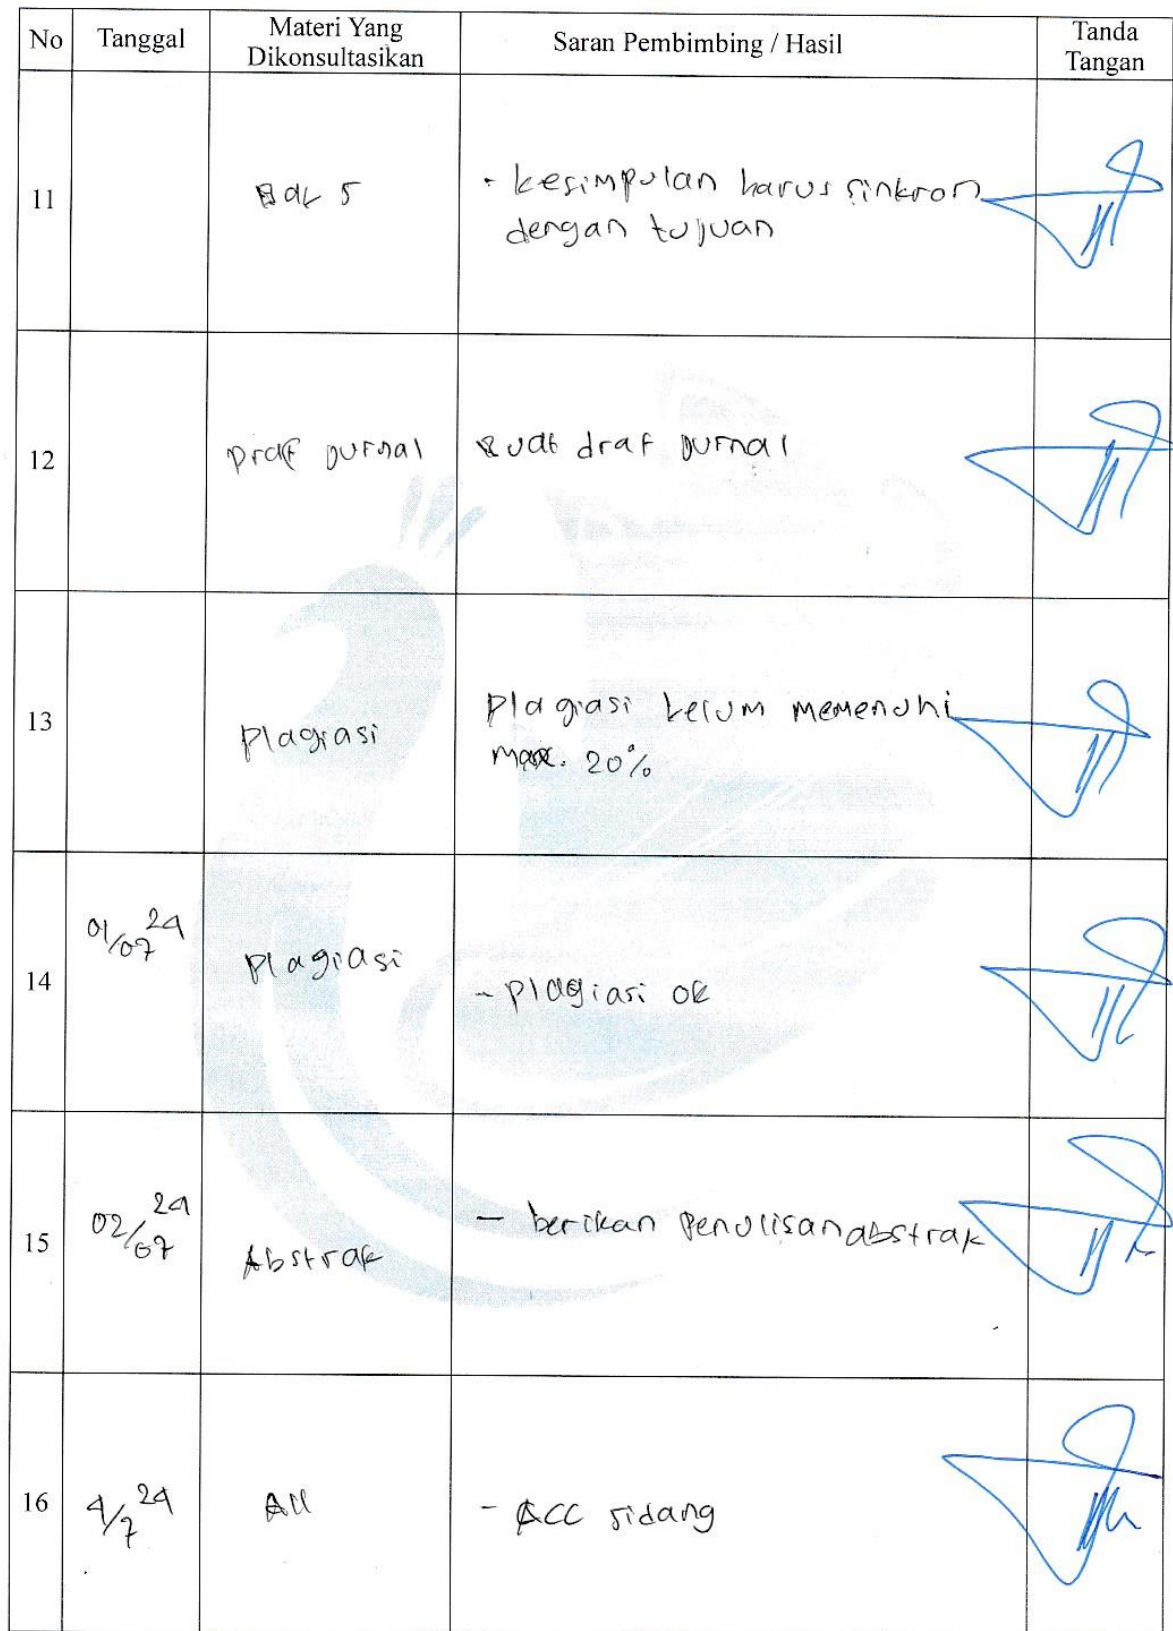 No Tanggal Materi Yang Dikonsultasikan Saran Pembimbing / Hasil Tanda Tangan
11 Bab 5 - kesimpulan harus sinkron
dengan tujuan
12 Draf jurnal Buat draf jurnal
13 Plagiasi Plagiasi belum memenuhi
max. 20%
14 01/07 24 Plagiasi - Plagiasi ok
15 02/07 24 Abstrak - berikan penulisan abstrak
16 4/7 24 All - ACC sidang